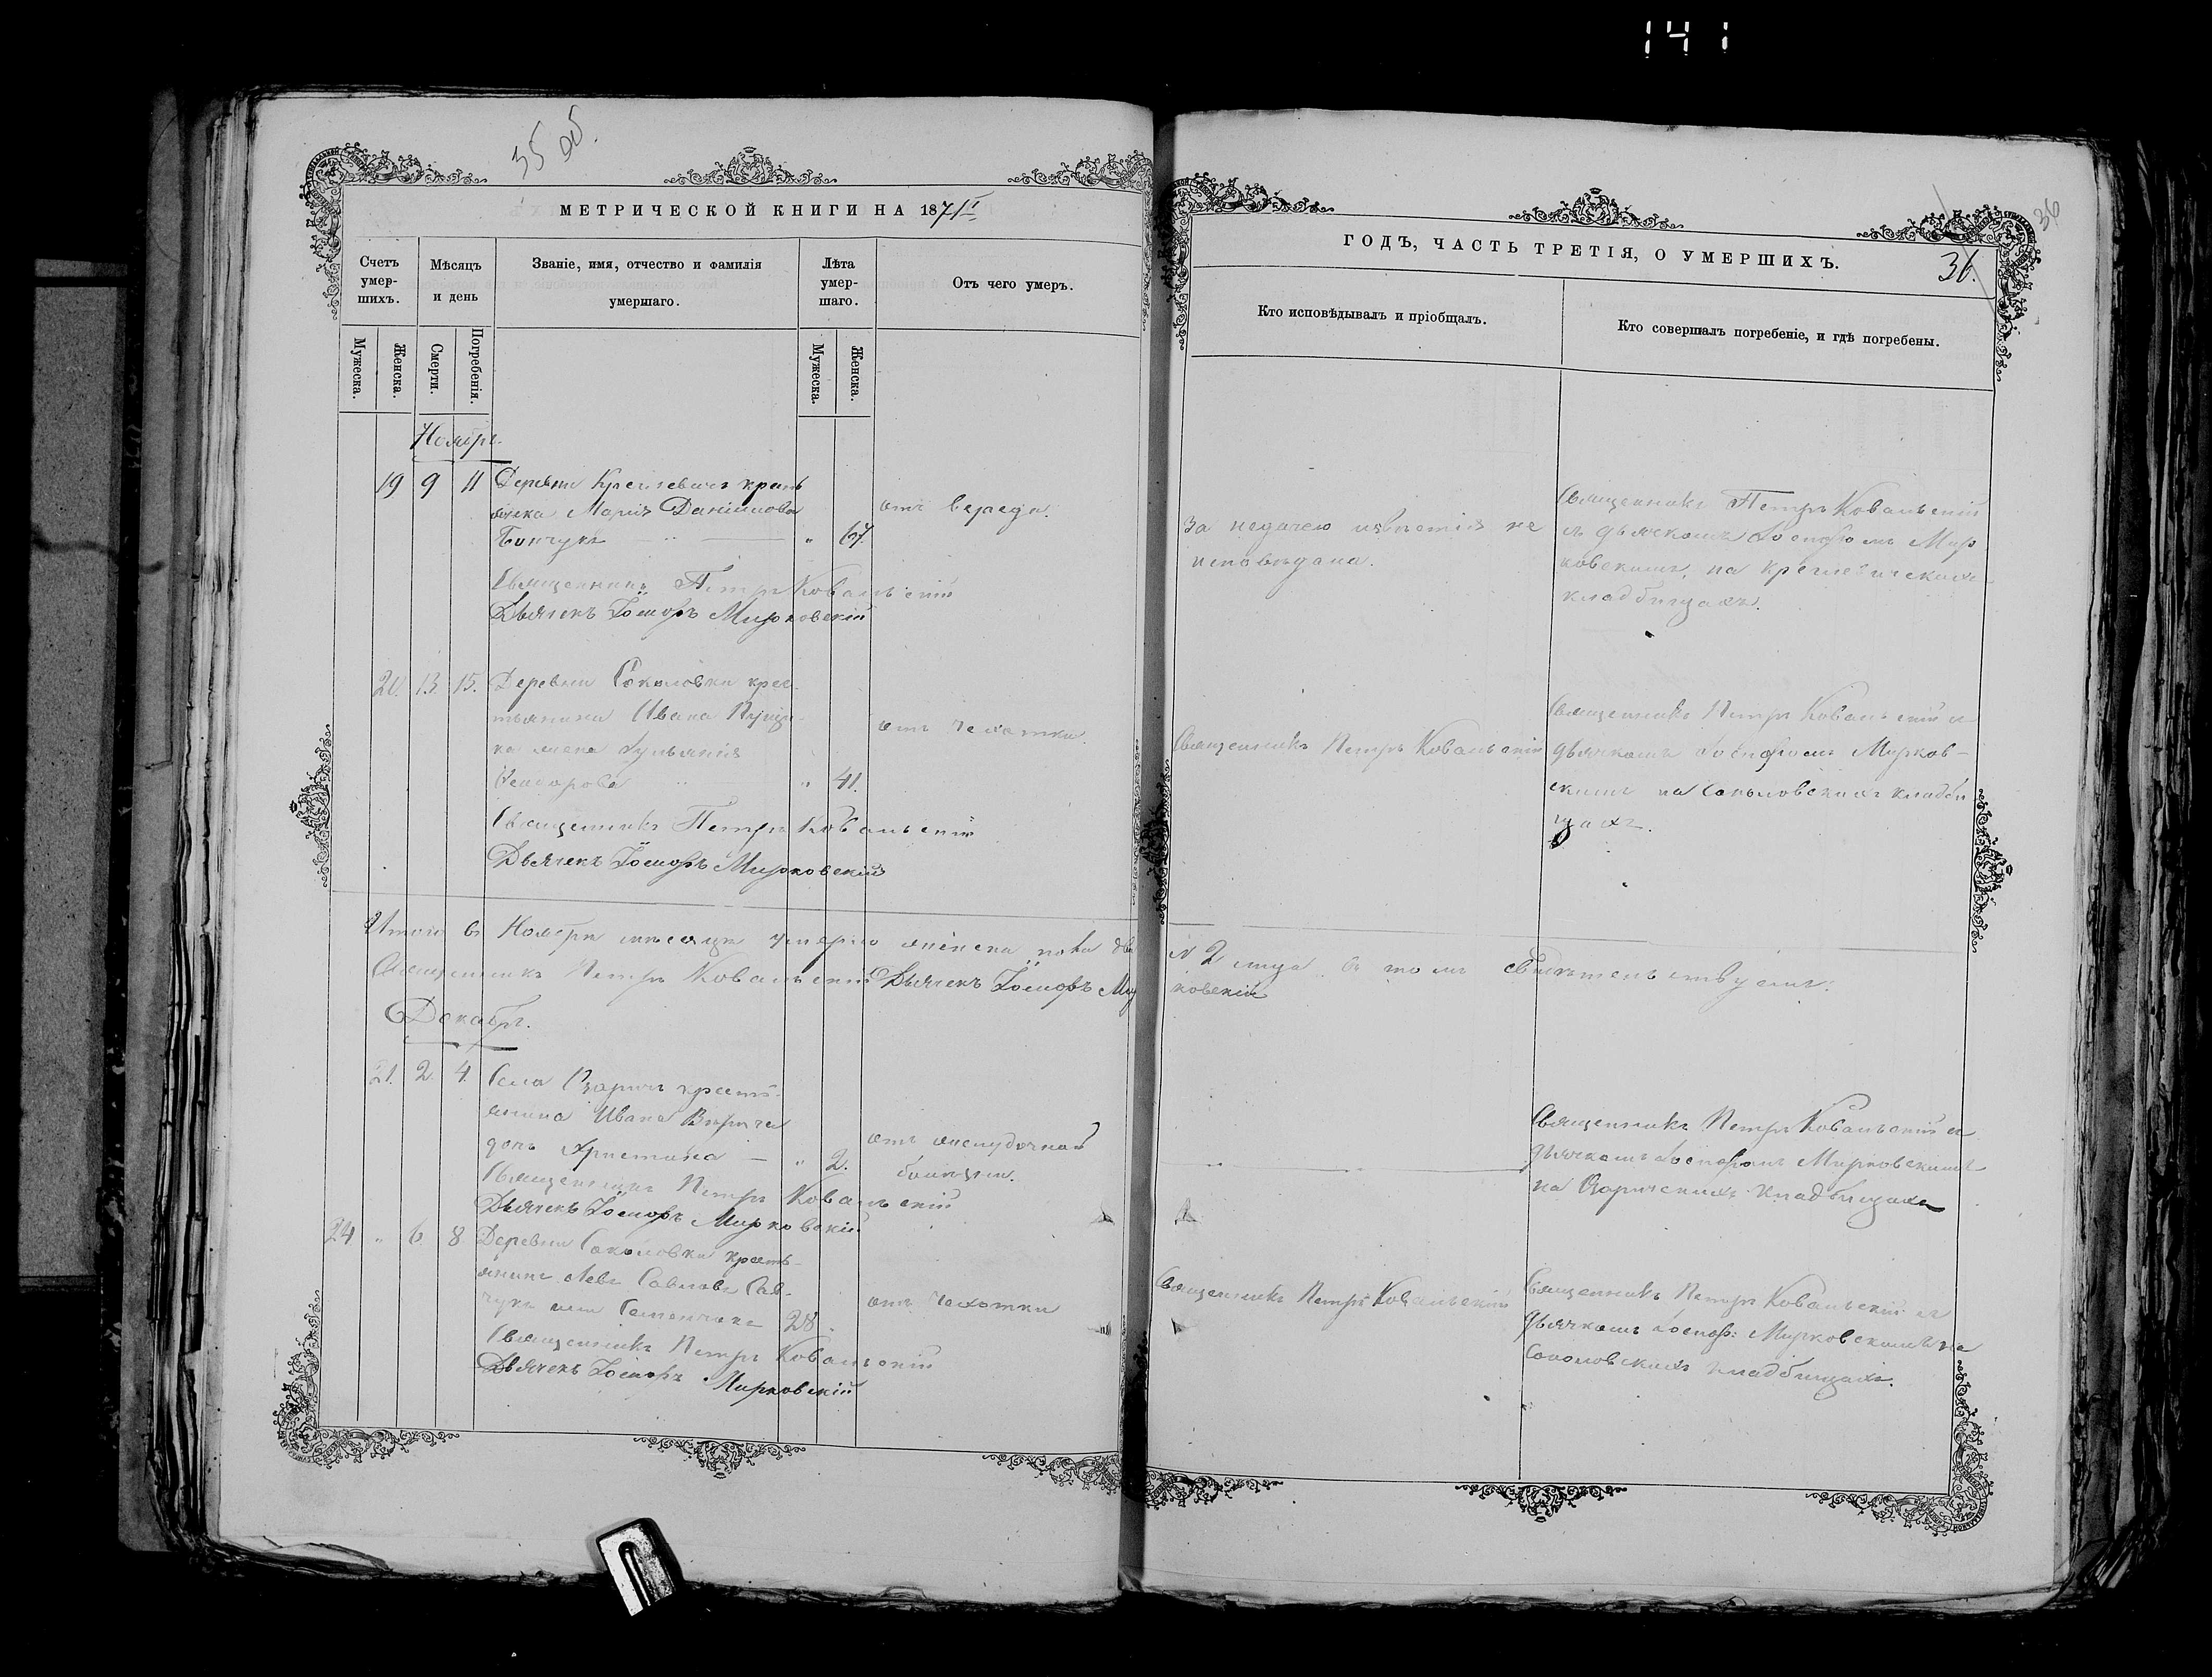 141
35 об.
МЕТРИЧЕСКОЙ КНИГИ НА 1871
Счетъ умершихъ.
Мѣсяцъ и день
Званіе, имя, отчество и фамилія умершаго.
Лѣта умершаго.
Отъ чего умеръ.
Мужеска.
Женска.
Смерти.
Погребенія.
Мужеска.
Женска.
Ноябрь
19 9 11 Деревни крестьянка Марія Даніилова
" 67
отъ вереда.
Священникъ Петръ Ковальскій
Дьячекъ Іосифъ Мирковскій
20. 13 15. Деревни Соколовки крес-
тьянина Ивана
на жена Ульянія
Ѳеодорова " 41.
отъ чахотки.
Священникъ Петръ Ковальскій
Дьячекъ Іосифъ Мирковскій
Итого въ Ноябрѣ мѣсяцѣ умерло женска пола
Священникъ Петръ Ковальскій Дьячекъ Іосифъ Мир
Декабрь.
21. 2 4. Села крестьянина Ивана
дочь Христина — " 2.
отъ желудочной
болѣзни.
Священникъ Петръ Ковальскій
Дьячекъ Іосифъ Мирковскій
24 " 6. 8. Деревни Соколовки кресть-
янинъ Левъ Савловъ Сав-
чукъ или 28.
отъ чахотки
Священникъ Петръ Ковальскій
Дьячекъ Іосифъ Мирковскій
36
ГОДЪ, ЧАСТЬ ТРЕТІЯ, О УМЕРШИХЪ.
36.
Кто исповѣдывалъ и пріобщалъ.
Кто совершалъ погребеніе, и гдѣ погребены.
За недачею извѣстія не
исповѣдана.
Священникъ Петръ Ковальскій
съ дьячкомъ Іосифомъ Мир
ковскимъ, на
кладбищахъ.
Священникъ Петръ Ковальскій
Священникъ Петръ Ковальскій съ
дьячкомъ Іосифомъ Мирков-
скимъ на Соколовскихъ кладби
щахъ.
2 лица въ томъ свидѣтельствуемъ:
ковскій
Священникъ Петръ Ковальскій съ
дьячкомъ Іосифомъ Мирковскимъ
на кладбищахъ
Священникъ Петръ Ковальскій
Священникъ Петръ Ковальскій съ
дьячкомъ Іосиф: Мирковскимъ на
Соколовскихъ кладбищахъ.